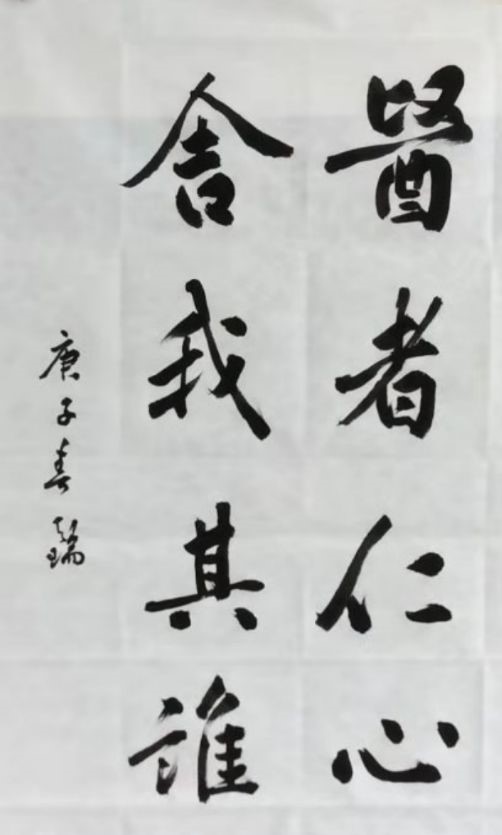 醫者仁心
舍我其誰
庚子春